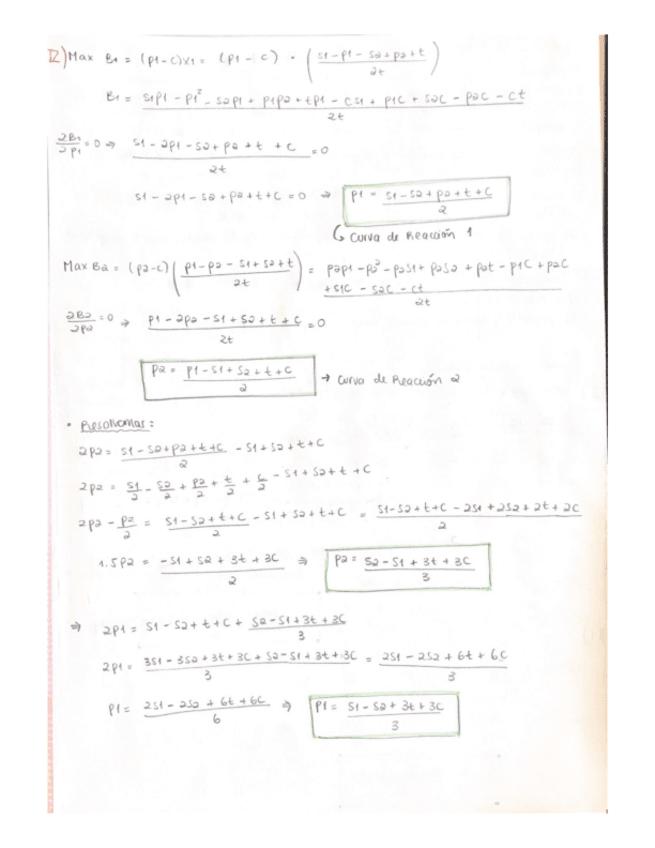 2) Max B1 = (p1-c)x1 = (p1 - c) · ( (s1-p1-s2+p2+t) / 2t )
B1 = (s1p1 - p1² - s2p1 + p1p2 + tp1 - cs1 + p1c + s2c - p2c - ct) / 2t
∂B1/∂p1 = 0 ⇒ (s1 - 2p1 - s2 + p2 + t + c) / 2t = 0
s1 - 2p1 - s2 + p2 + t + c = 0 ⇒ p1 = (s1 - s2 + p2 + t + c) / 2
↳ Curva de Reacción 1
Max B2 = (p2-c) ( (p1-p2-s1+s2+t) / 2t ) = (p2p1 - p2² - p2s1 + p2s2 + p2t - p1c + p2c
+ s1c - s2c - ct) / 2t
∂B2/∂p2 = 0 ⇒ (p1 - 2p2 - s1 + s2 + t + c) / 2t = 0
p2 = (p1 - s1 + s2 + t + c) / 2 → Curva de Reacción 2
· Resolvemos:
2p2 = (s1 - s2 + p2 + t + c) / 2 - s1 + s2 + t + c
2p2 = s1/2 - s2/2 + p2/2 + t/2 + c/2 - s1 + s2 + t + c
2p2 - p2/2 = (s1 - s2 + t + c) / 2 - s1 + s2 + t + c = (s1 - s2 + t + c - 2s1 + 2s2 + 2t + 2c) / 2
1.5p2 = (-s1 + s2 + 3t + 3c) / 2 ⇒ p2 = (s2 - s1 + 3t + 3c) / 3
⇒ 2p1 = s1 - s2 + t + c + (s2 - s1 + 3t + 3c) / 3
2p1 = (3s1 - 3s2 + 3t + 3c + s2 - s1 + 3t + 3c) / 3 = (2s1 - 2s2 + 6t + 6c) / 3
p1 = (2s1 - 2s2 + 6t + 6c) / 6 ⇒ p1 = (s1 - s2 + 3t + 3c) / 3